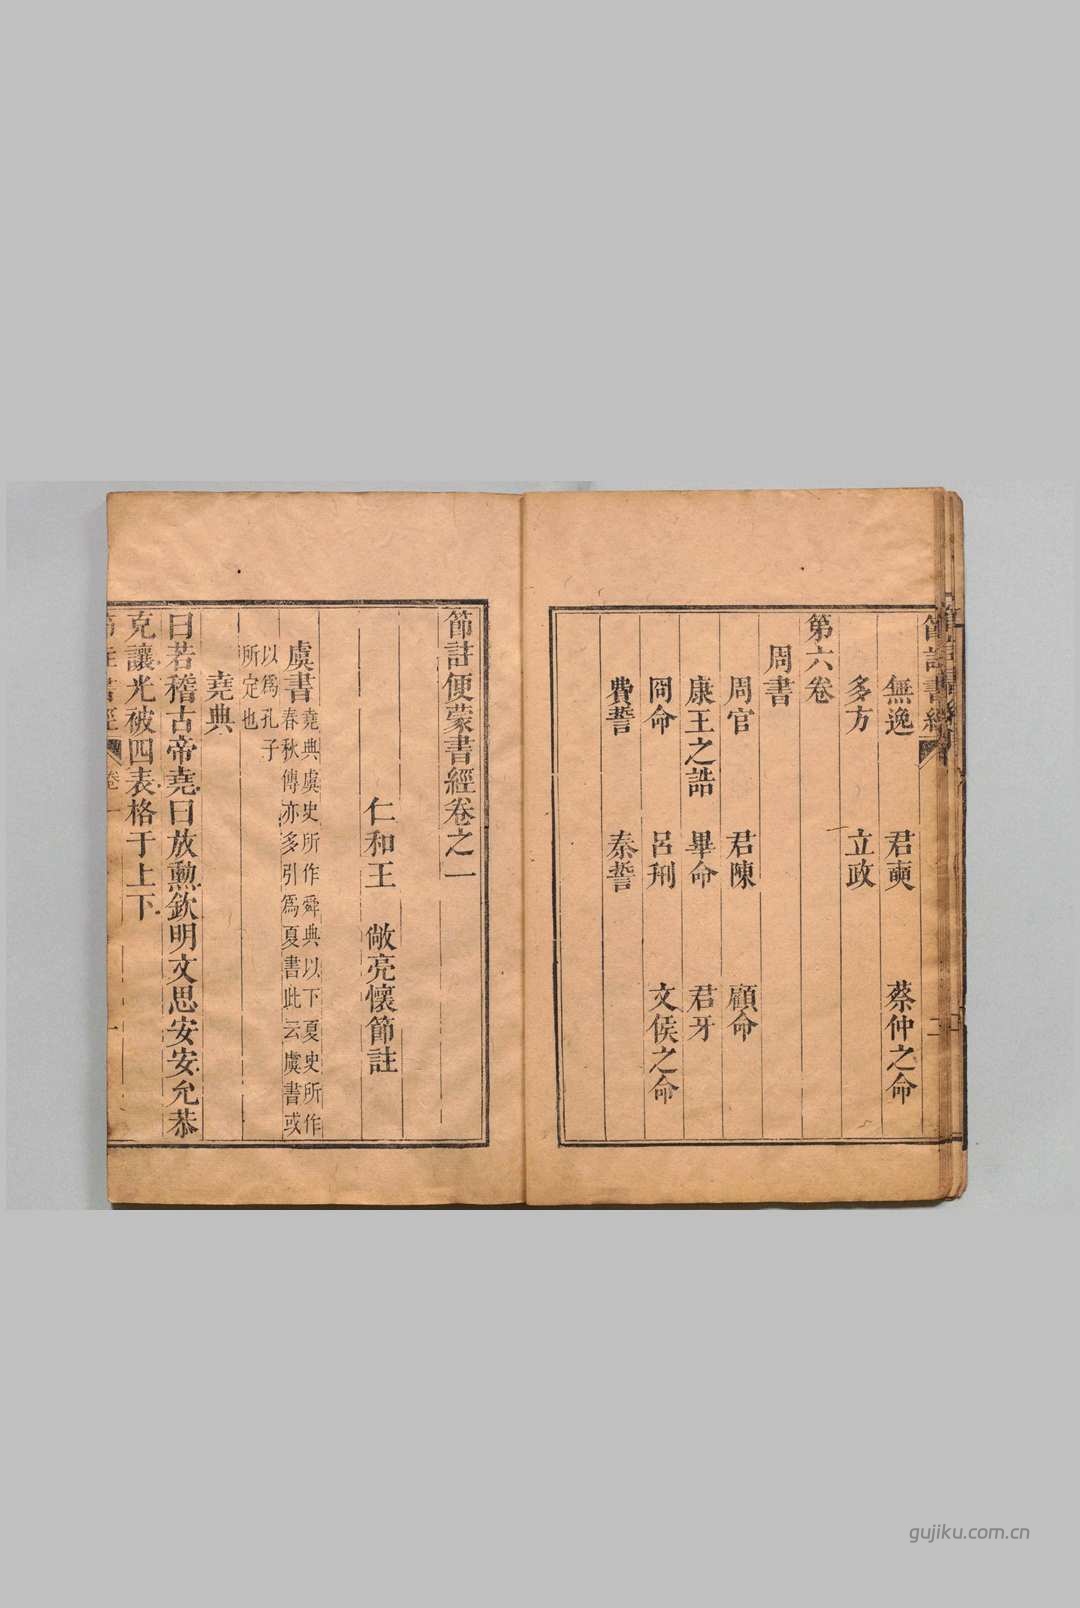 節註書經
二
無逸 君奭 蔡仲之命
多方 立政
第六卷
周書
周官 君陳 顧命
康王之誥 畢命 君牙
冏命 呂刑 文侯之命
費誓 秦誓
節註便蒙書經卷之一
仁和王 敞亮懷節註
虞書 堯典虞史所作舜典以下夏史所作
春秋傳亦多引為夏書此云虞書或
以為孔子
所定也
堯典
曰若稽古帝堯曰放勲欽明文思安安允恭
克讓光被四表格于上下
節註書經 卷一 一
gujiku.com.cn